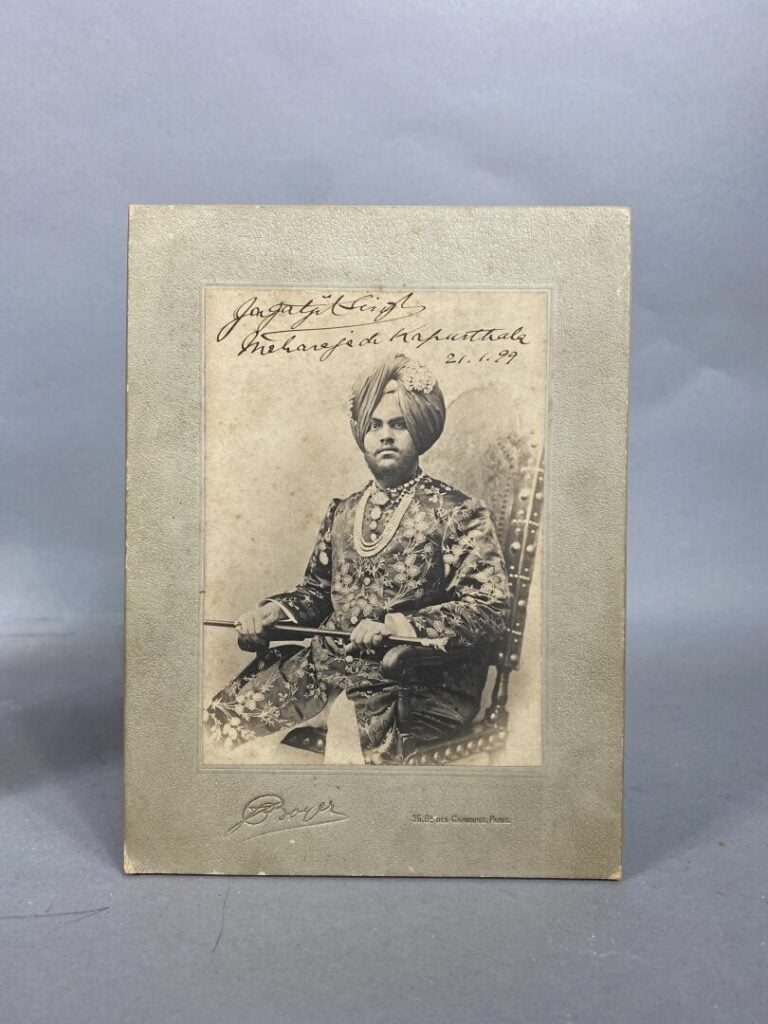 Jagatjit Singh
Maharaja de Kapurthala
21.1.99
Boyer
35, Bd. des Capucines, Paris.